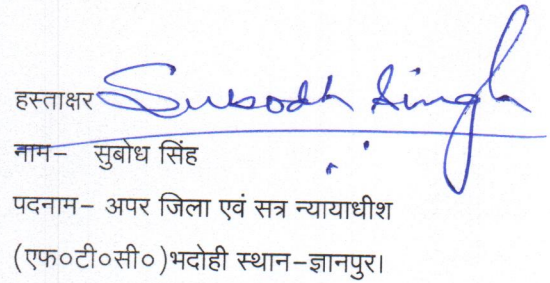 हस्ताक्षर Subodh Singh
नाम- सुबोध सिंह
पदनाम- अपर जिला एवं सत्र न्यायाधीश
(एफ०टी०सी०)भदोही स्थान-ज्ञानपुर।